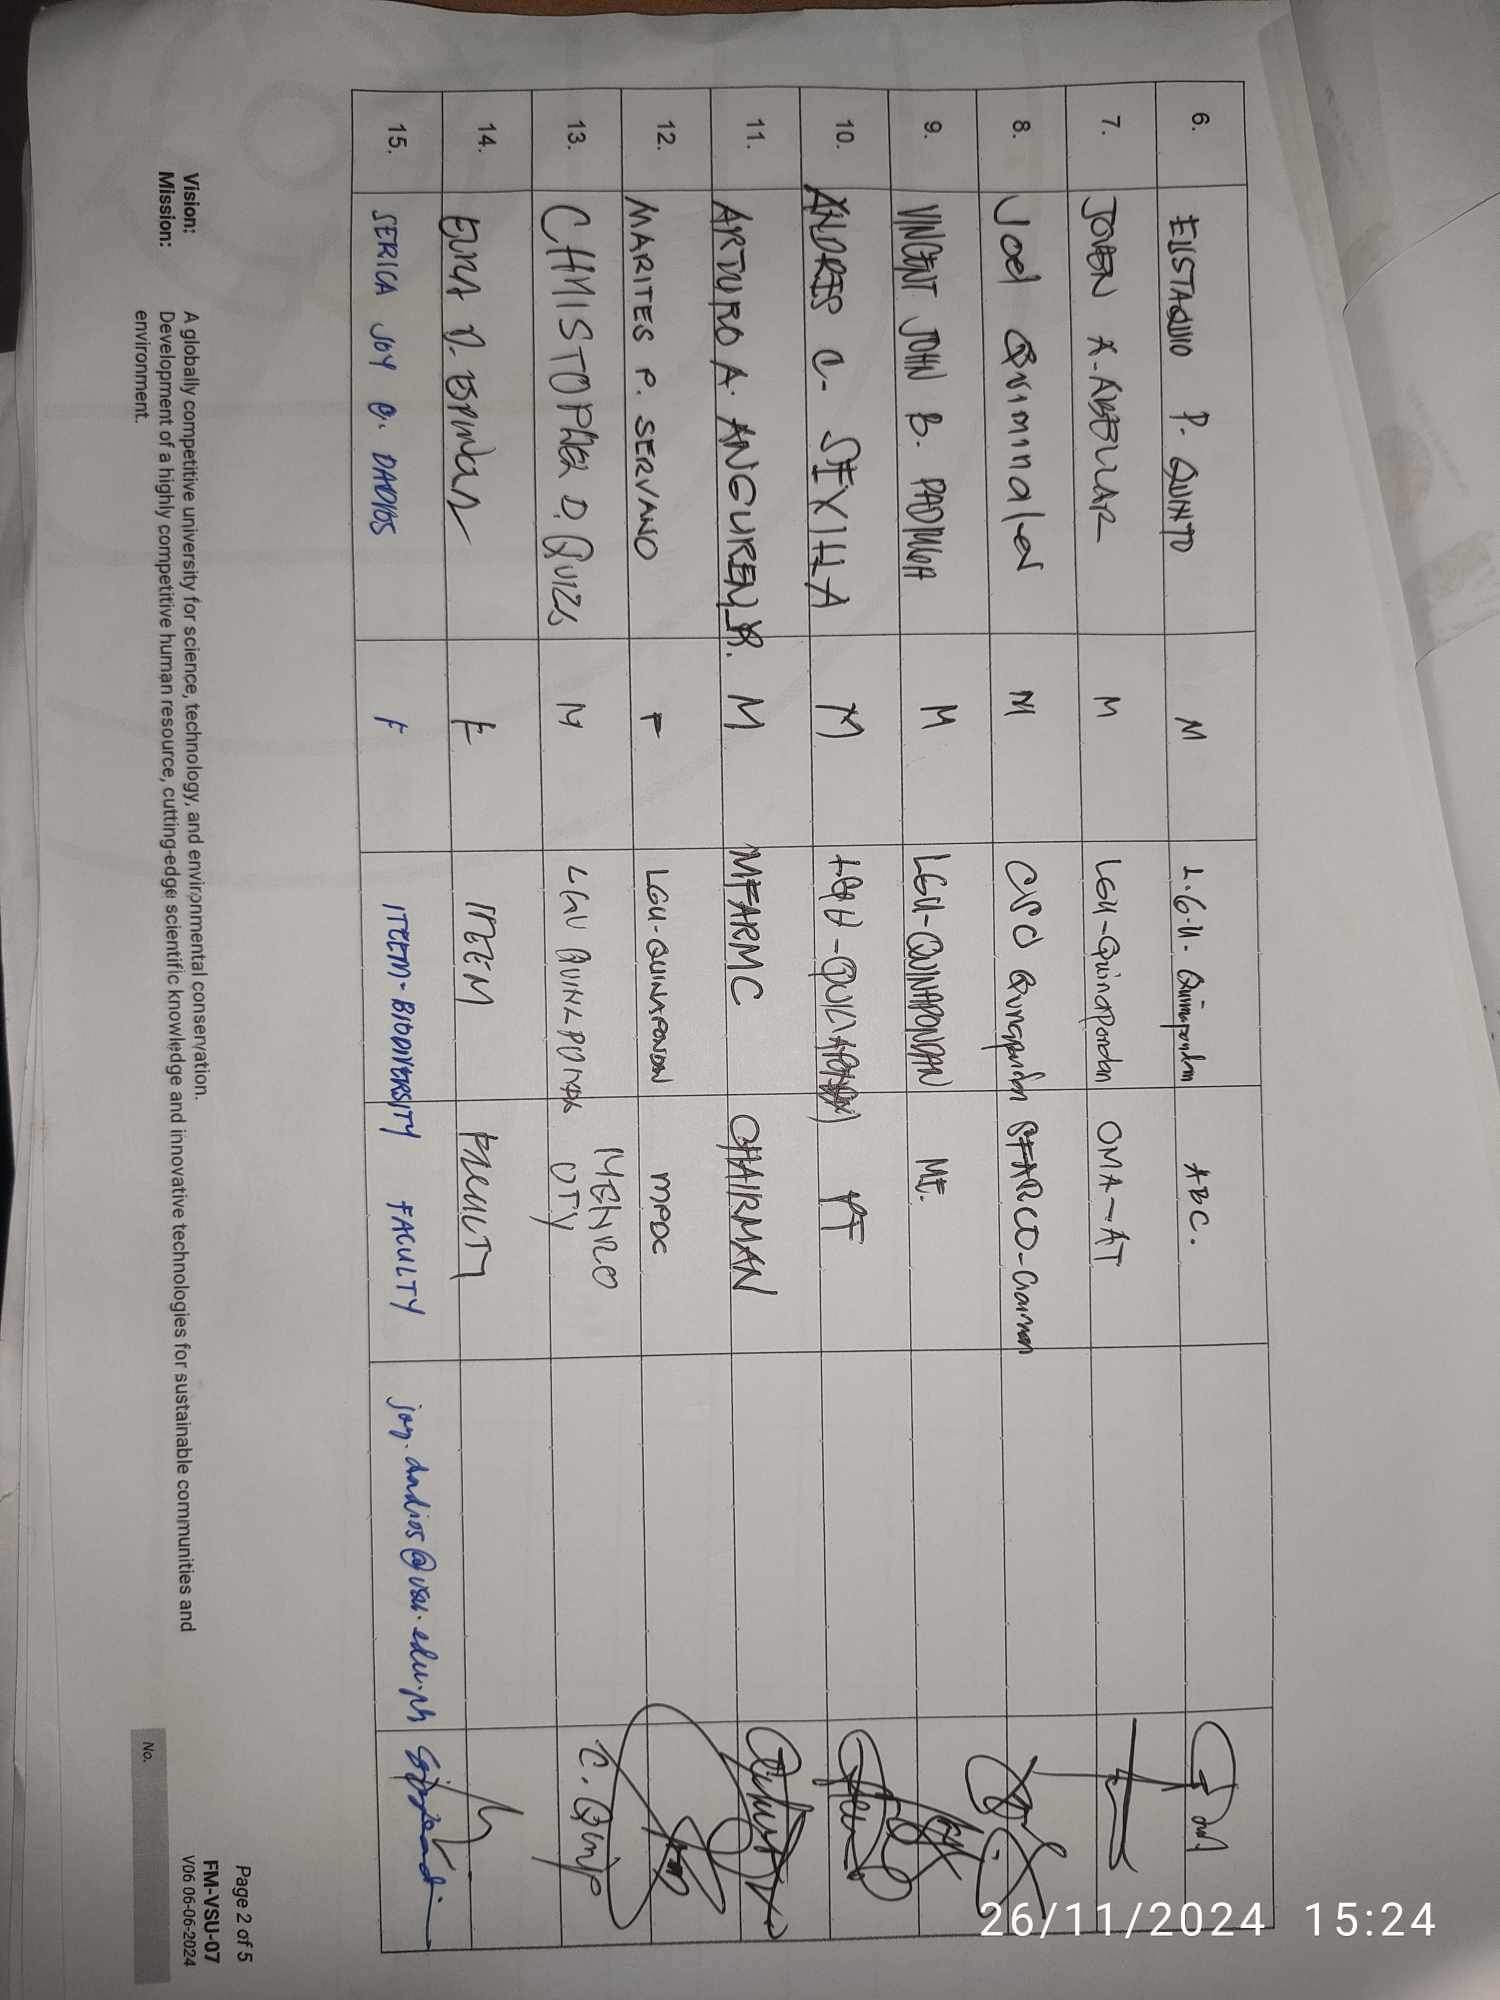 6. EUSTAQUIO P. QUINTO M L.G.U. Quinapondan ABC.
7. JOVEN A. ABELLAR M LGU-Quinapondan OMA-AT
8. Joel M CSO Quinapondan SFARCO-Chairman
9. VINCENT JOHN B. PADINGA M LGU-QUINAPONDAN ME.
10. ANDRES C. M LGU-QUINAPONDAN PF
11. ARTURO A. ANGUREN JR. M MFARMC CHAIRMAN
12. MARITES P. SERVANO F LGU-QUINAPONDAN MPDC
13. CHRISTOPHER D. M LGU QUINAPONDAN MENRO
14. D. F ITEEM FACULTY
15. SERICA JOY O. DADIOS F ITEEM-BIODIVERSITY FACULTY joy.dadios@vsu.edu.ph
Vision: A globally competitive university for science, technology, and environmental conservation.
Mission: Development of a highly competitive human resource, cutting-edge scientific knowledge and innovative technologies for sustainable communities and
environment.
Page 2 of 5
FM-VSU-07
V06 06-06-2024
No.
26/11/2024 15:24